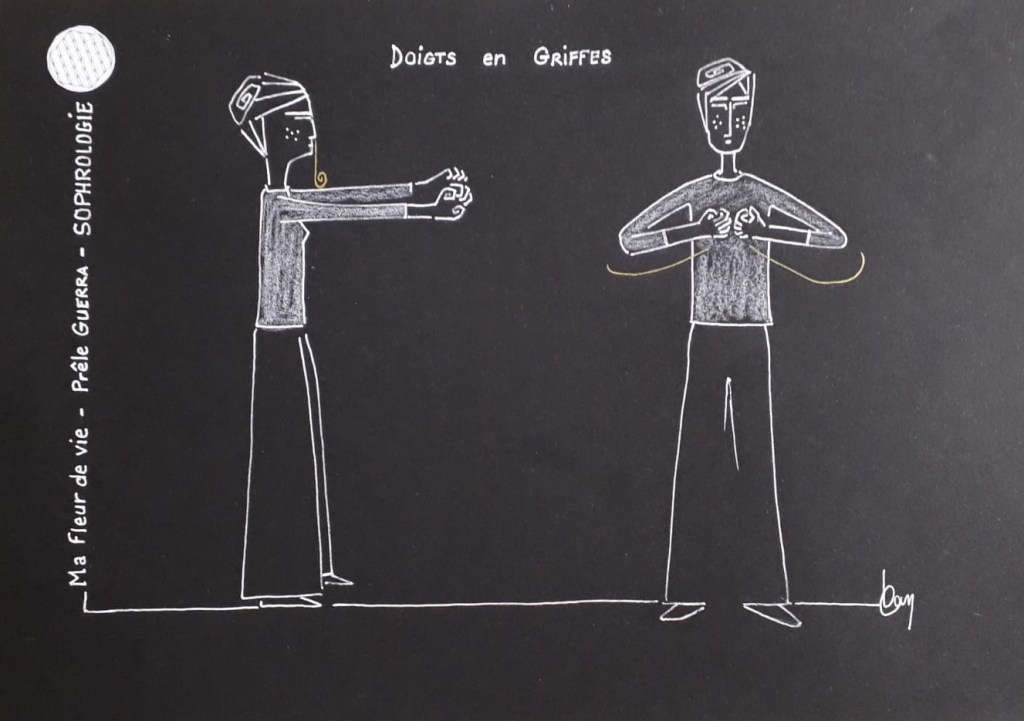 Doigts en Griffes
Ma fleur de vie - Prêle Guerra - SOPHROLOGIE